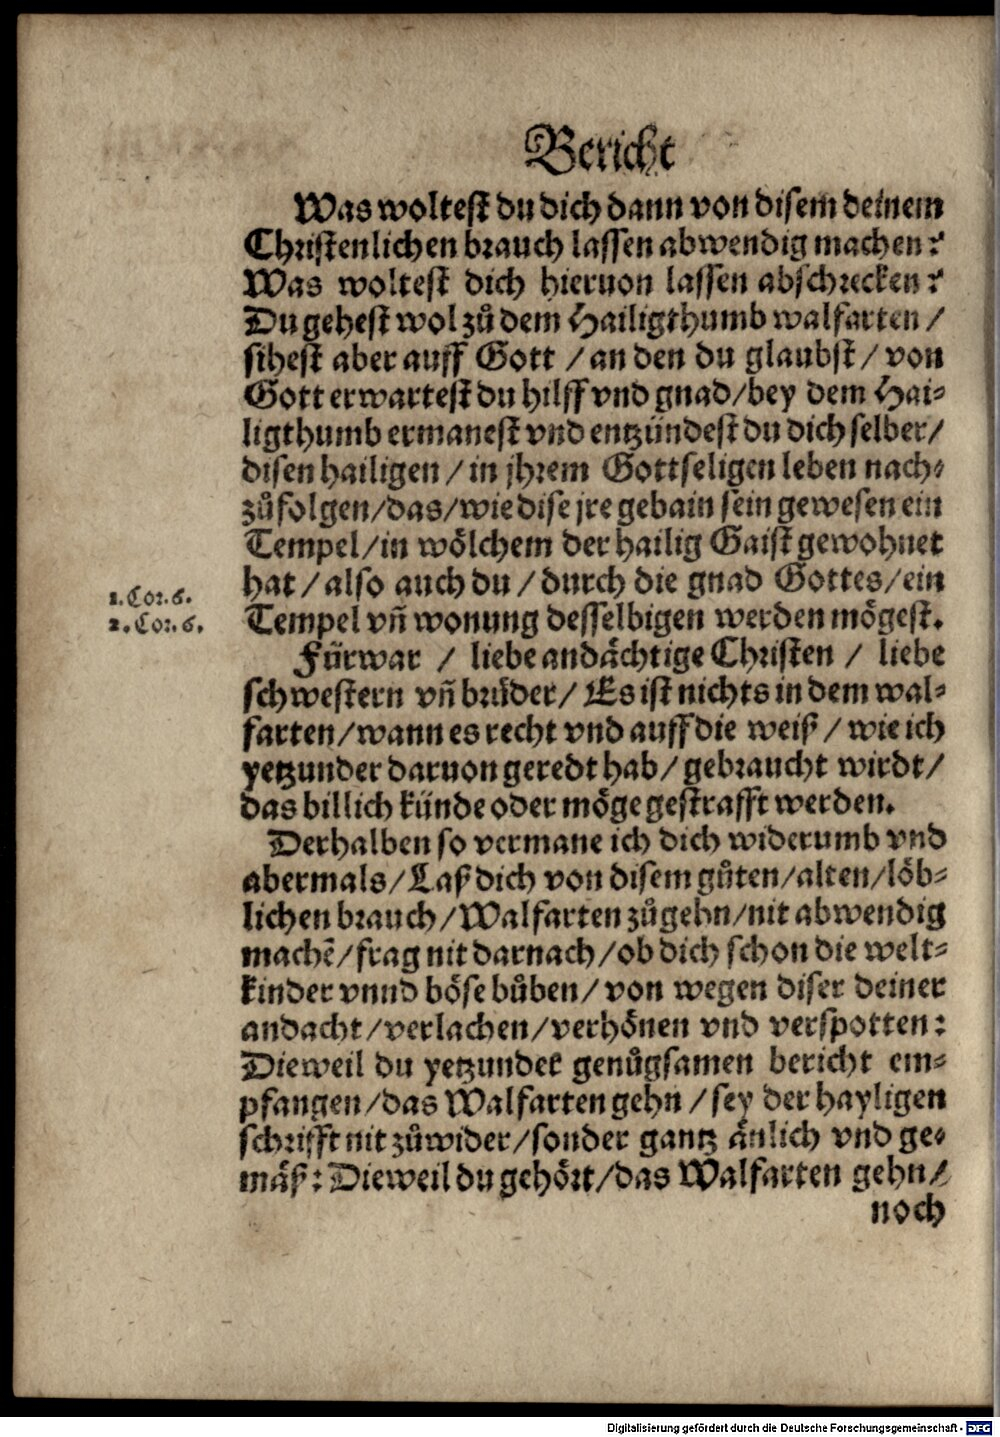 Bericht
Was woltest du dich dann von disem deinem
Christenlichen brauch lassen abwendig machen?
Was woltest dich hieruon lassen abschrecken?
Du gehest wol zů dem Hailigthumb walfarten /
sihest aber auff Gott / an den du glaubst / von
Gott erwartest du hilff vnd gnad/bey dem Hai⸗
ligthumb ermanest vnd entzündest du dich selber/
disen hailigen / in jhrem Gottseligen leben nach⸗
zůfolgen/das/wie dise jre gebain sein gewesen ein
Tempel/in wölchem der hailig Gaist gewohnet
hat / also auch du / durch die gnad Gottes/ein
1. Cor. 6.
2. Cor. 6.
Tempel vñ wonung desselbigen werden mögest.
Fürwar / liebe andächtige Christen / liebe
schwestern vñ brůder/ Es ist nichts in dem wal⸗
farten/wann es recht vnd auff die weiß / wie ich
yetzunder daruon geredt hab/ gebraucht wirdt/
das billich künde oder möge gestrafft werden.
Derhalben so vermane ich dich widerumb vnd
abermals/Laß dich von disem gůten/alten/löb⸗
lichen brauch/Walfarten zůgehn/nit abwendig
machē/frag nit darnach/ob dich schon die welt⸗
kinder vnnd böse bůben/ von wegen diser deiner
andacht/verlachen/verhönen vnd verspotten:
Dieweil du yetzunder genůgsamen bericht em⸗
pfangen/das Walfarten gehn / sey der hayligen
schrifft nit zůwider/sonder gantz änlich vnd ge⸗
mäß: Dieweil du gehört/das Walfarten gehn/
noch
Digitalisierung gefördert durch die Deutsche Forschungsgemeinschaft - DFG